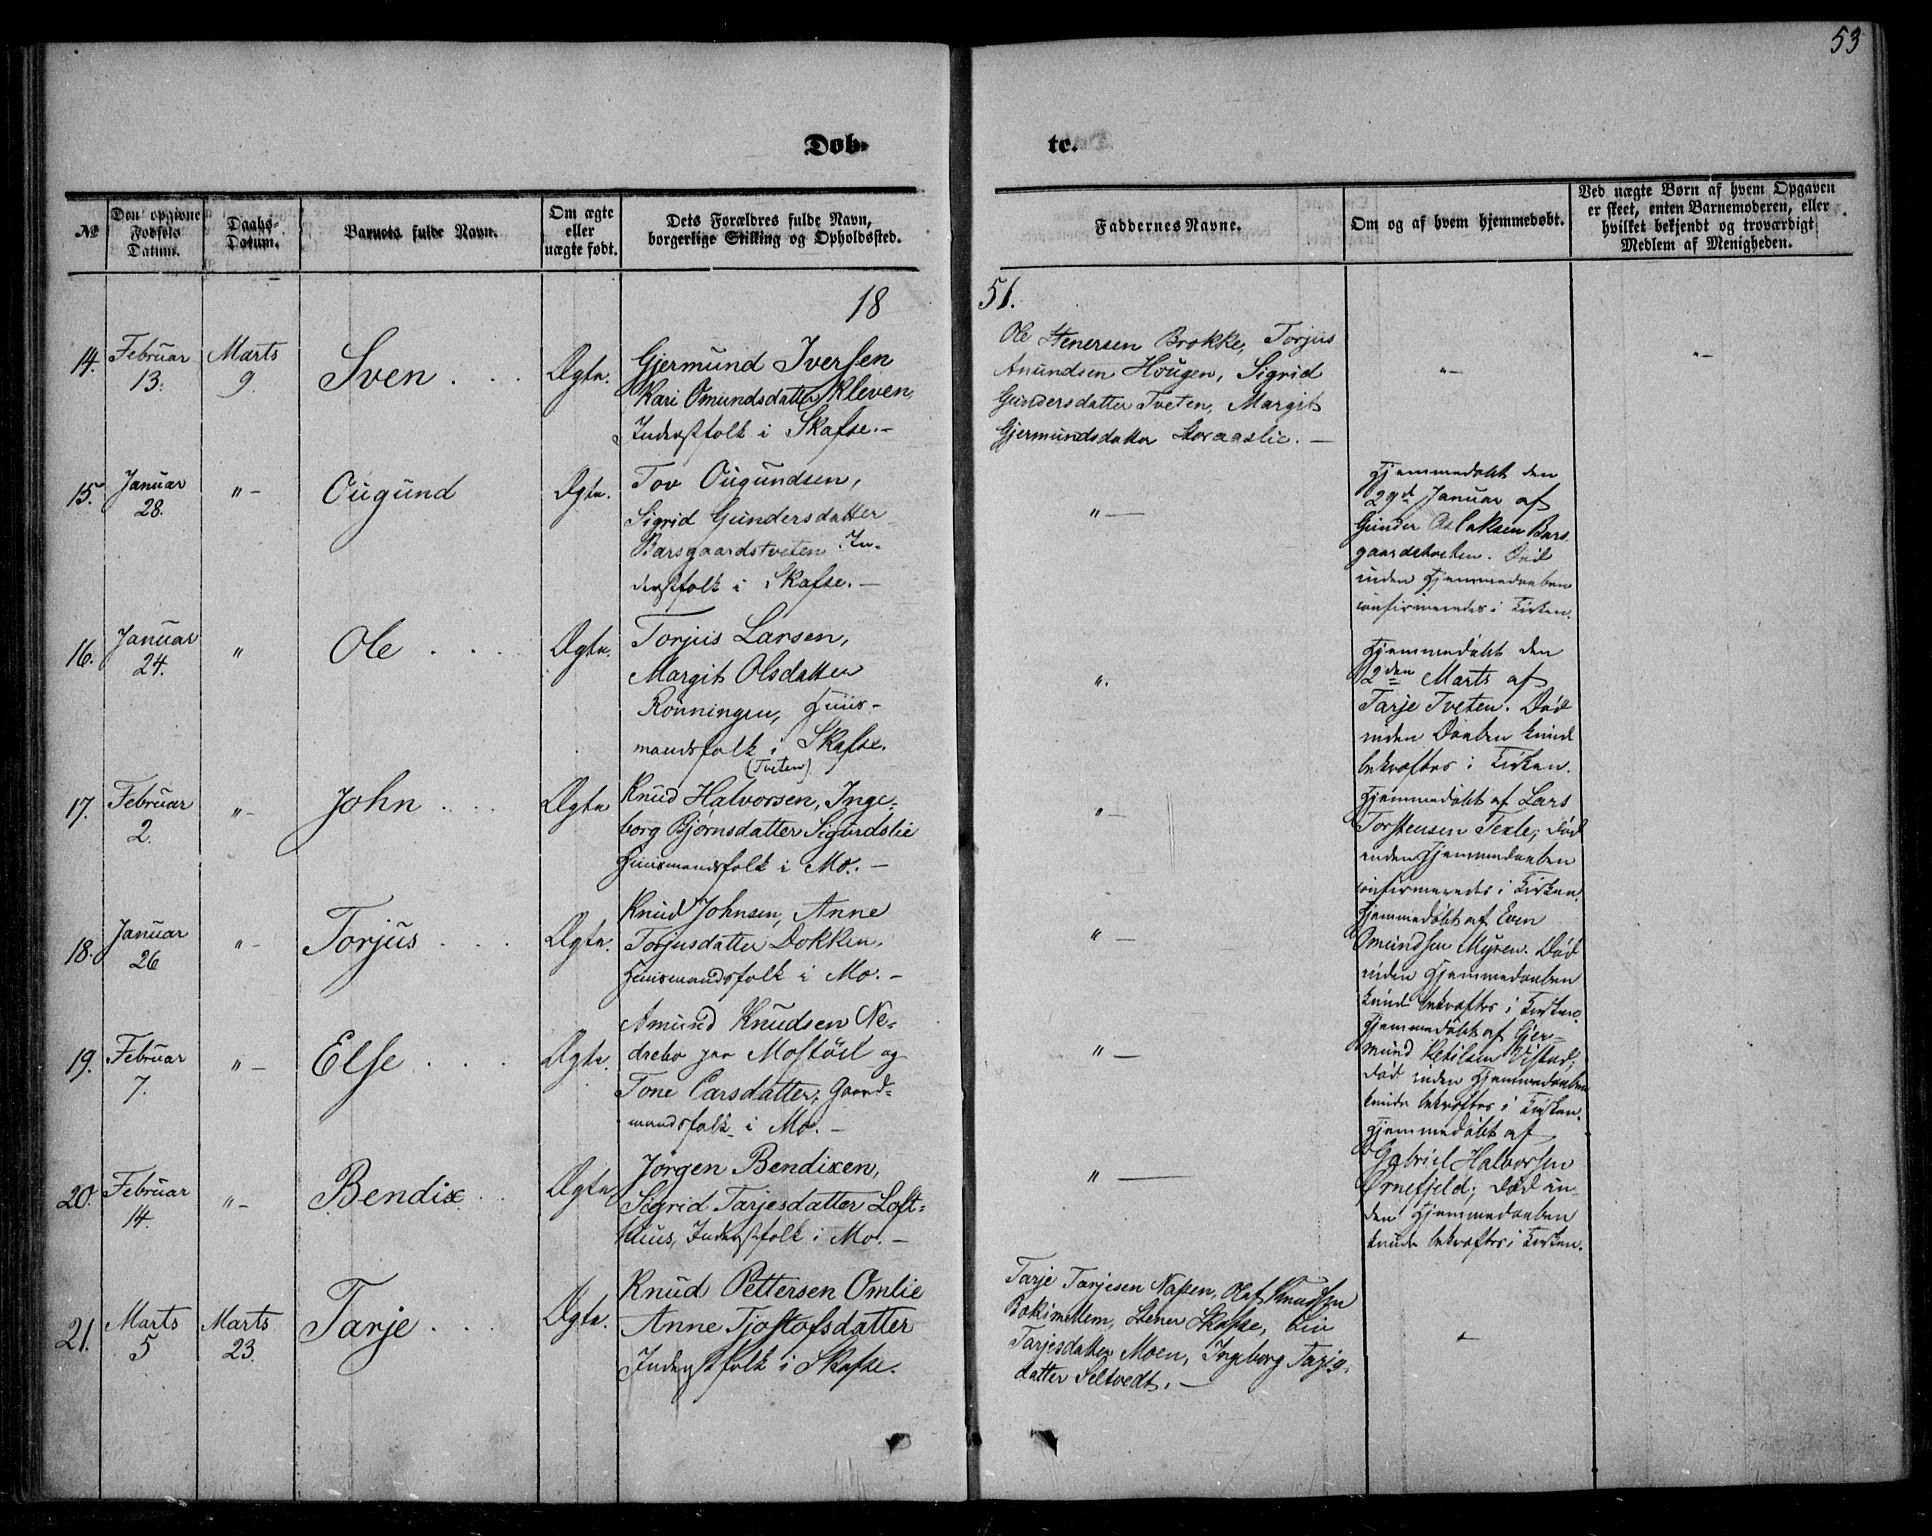 53
Døb-
te.
№
Den opgivne
Fødsels
Datum.
Daabs-
Datum.
Barnets fulde Navn.
Om ægte
eller
uægte født.
Dets Forældres fulde Navn,
borgerlige Stilling og Opholdssted.
Faddernes Navne.
Om og af hvem hjemmedøbt.
Ved uægte Børn af hvem Opgaven
er skeet, enten Barnemoderen, eller
hvilket bekjendt og troværdigt
Medlem af Menigheden.
18
51.
14.
Februar
13.
Marts
9.
Sven
Ægte.
Gjermund Iversen
Kari Omundsdatter Kleven
Inderstfolk i Skafse.-
Ole Stenersen Brokke, Torjus
Anundsen Hougen, Sigrid
Gundersdatter Tveten, Margit
Gjermundsdatter Storaaslie. -
"-
"-
15.
Januar
28.
"-
Ougund
Ægte.
Tov Ougundsen,
Sigrid Gundersdatter
Barsgaardstveten In-
derstfolk i Skafse. -
"-
Hjemmedøbt den
29d Januar af
Gunder Aslaksen Bars
gaardstveten. Død
inden Hjemmedaaben
confirmeredes i Kirken.
16.
Januar
24.
"
Ole
Ægte.
Torjus Larsen,
Margit Olsdatter
Rønningen, Huus-
mandsfolk i Skafse.
".
Hjemmedøbt den
2den Marts af
Tarje Tveten. Død
inden Daaben kund
bekræftes i Kirken.
17.
Februar
2.
"-
John
Ægte
(Tveten)
Knud Halvorsen, Inge-
borg Bjørnsdatter Sigurdslie
Huusmandsfolk i Mo. -
"-
Hjemmedøbt af Lars
Torstensen Texle; død
inden Hjemmedaaben
confirmeredes i Kirken.
18.
Januar
26
"-
Torjus
Ægte.
Knud Johnsen, Anne
Torjusdatter Dokken,
Huusmandsfolk i Mo. -
"-
Hjemmedøbt af Even
Omundsen Myren. Død
inden Hjemmedaaben
kund bekræftes i Kirken.
19.
Februar
7.
"-
Else
Ægte.
Amund Knudsen Ne-
drebo paa Mostøil og
Tone Larsdatter, Gaard-
mandsfolk i Mo. -
"-
Hjemmedøbt af Gjer-
mund Ketilsen Vistad;
død inden Hjemmedaaben
kunde bekræftes i Kirken.
20.
Februar
14.
"-
Bendix
Ægte
Jørgen Bendixen,
Sigrid Tarjesdatter Loft-
huus, Inderstfolk i Mo. -
"-
Hjemmedøbt af
Gabriel Halvorsen
Ørnefjeld; død in-
den Hjemmedaaben
kunde bekræftes i Kirken.
21.
Marts
5
Marts
23.
Tarje
Ægte.
Knud Pettersen Omlie
Anne Tjostofsdatter
Inderstfolk i Skafse.
Tarje Tarjesen Næsen, Olaf Knudsen
Stener Skafse, Liv
Tarjesdatter Moen, Ingeborg Tarje-
datter Seltvedt. -
-